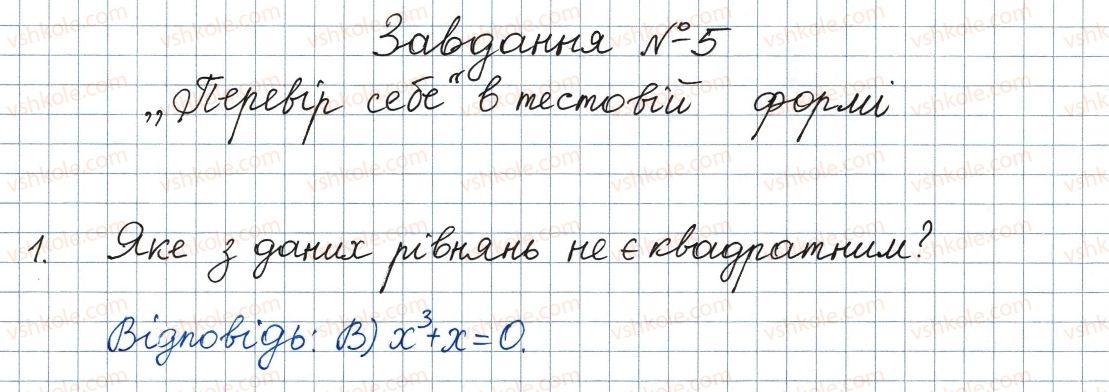 Завдання №5
„Перевір себе" в тестовій формі
1. Яке з даних рівнянь не є квадратним?
Відповідь: В) x³+x=0.